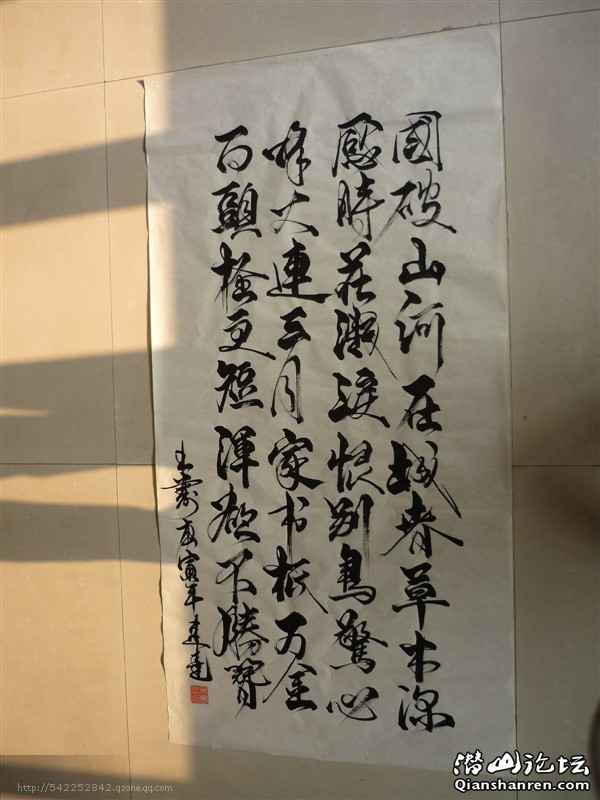 國破山河在城春草木深
感時花濺淚恨別鳥驚心
烽火連三月家书抵万金
百頭搔更短渾欲不勝簪
寅年
http://542252842.qzone.qq.com
潜山论坛
Qianshanren.com